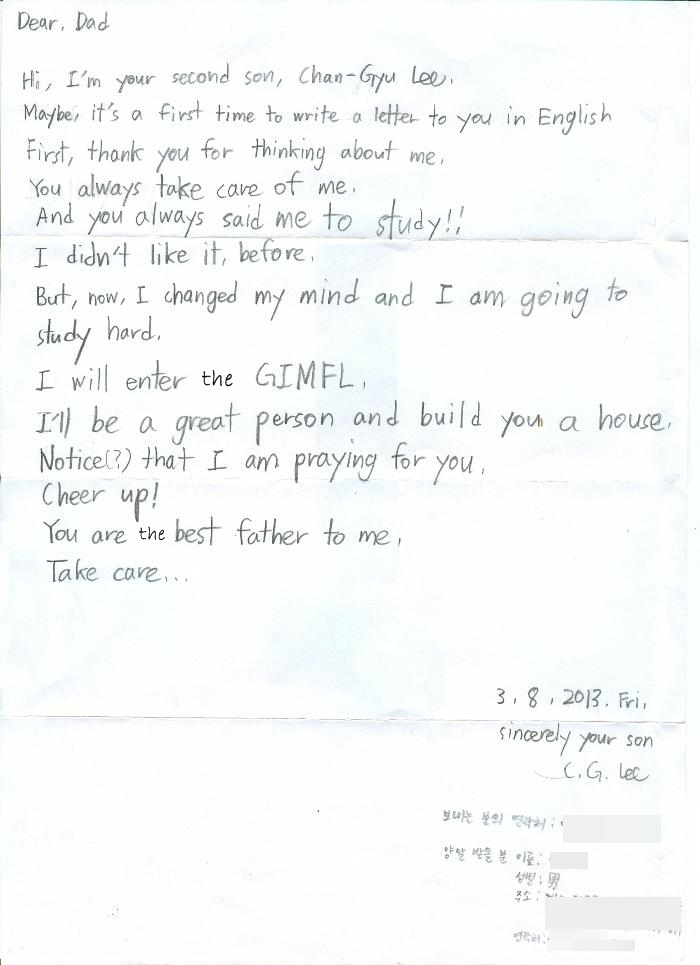 Dear, Dad
Hi, I'm your second son, Chan-Gyu Lee.
Maybe, it's a first time to write a letter to you in English
First, thank you for thinking about me.
You always take care of me.
And you always said me to study!!
I didn't like it, before.
But, now, I changed my mind and I am going to
study hard.
I will enter the GIMFL.
I'll be a great person and build you a house.
Notice(?) that I am praying for you.
Cheer up!
You are the best father to me.
Take care...
3. 8. 2013. Fri.
sincerely your son
C.G. Lee
보내는 분의 연락처 :
양말 받을 분 이름:
성별 : 男
주소 :
연락처: